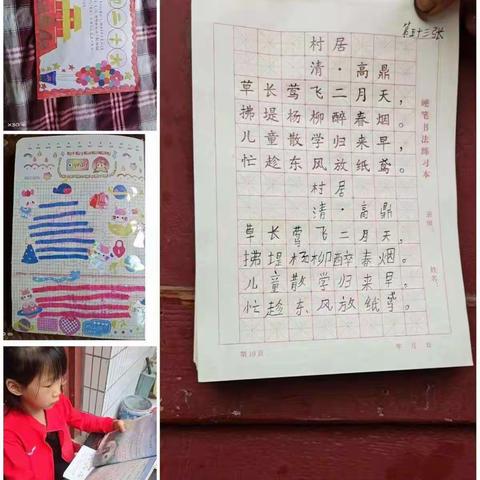 第五十三张
村居
清·高鼎
草长莺飞二月天，
拂堤杨柳醉春烟。
儿童散学归来早，
忙趁东风放纸鸢。
村居
清·高鼎
草长莺飞二月天，
拂堤杨柳醉春烟。
儿童散学归来早，
忙趁东风放纸鸢。
硬笔书法练习本
班级
姓名
第19页
年 月 日
二十大